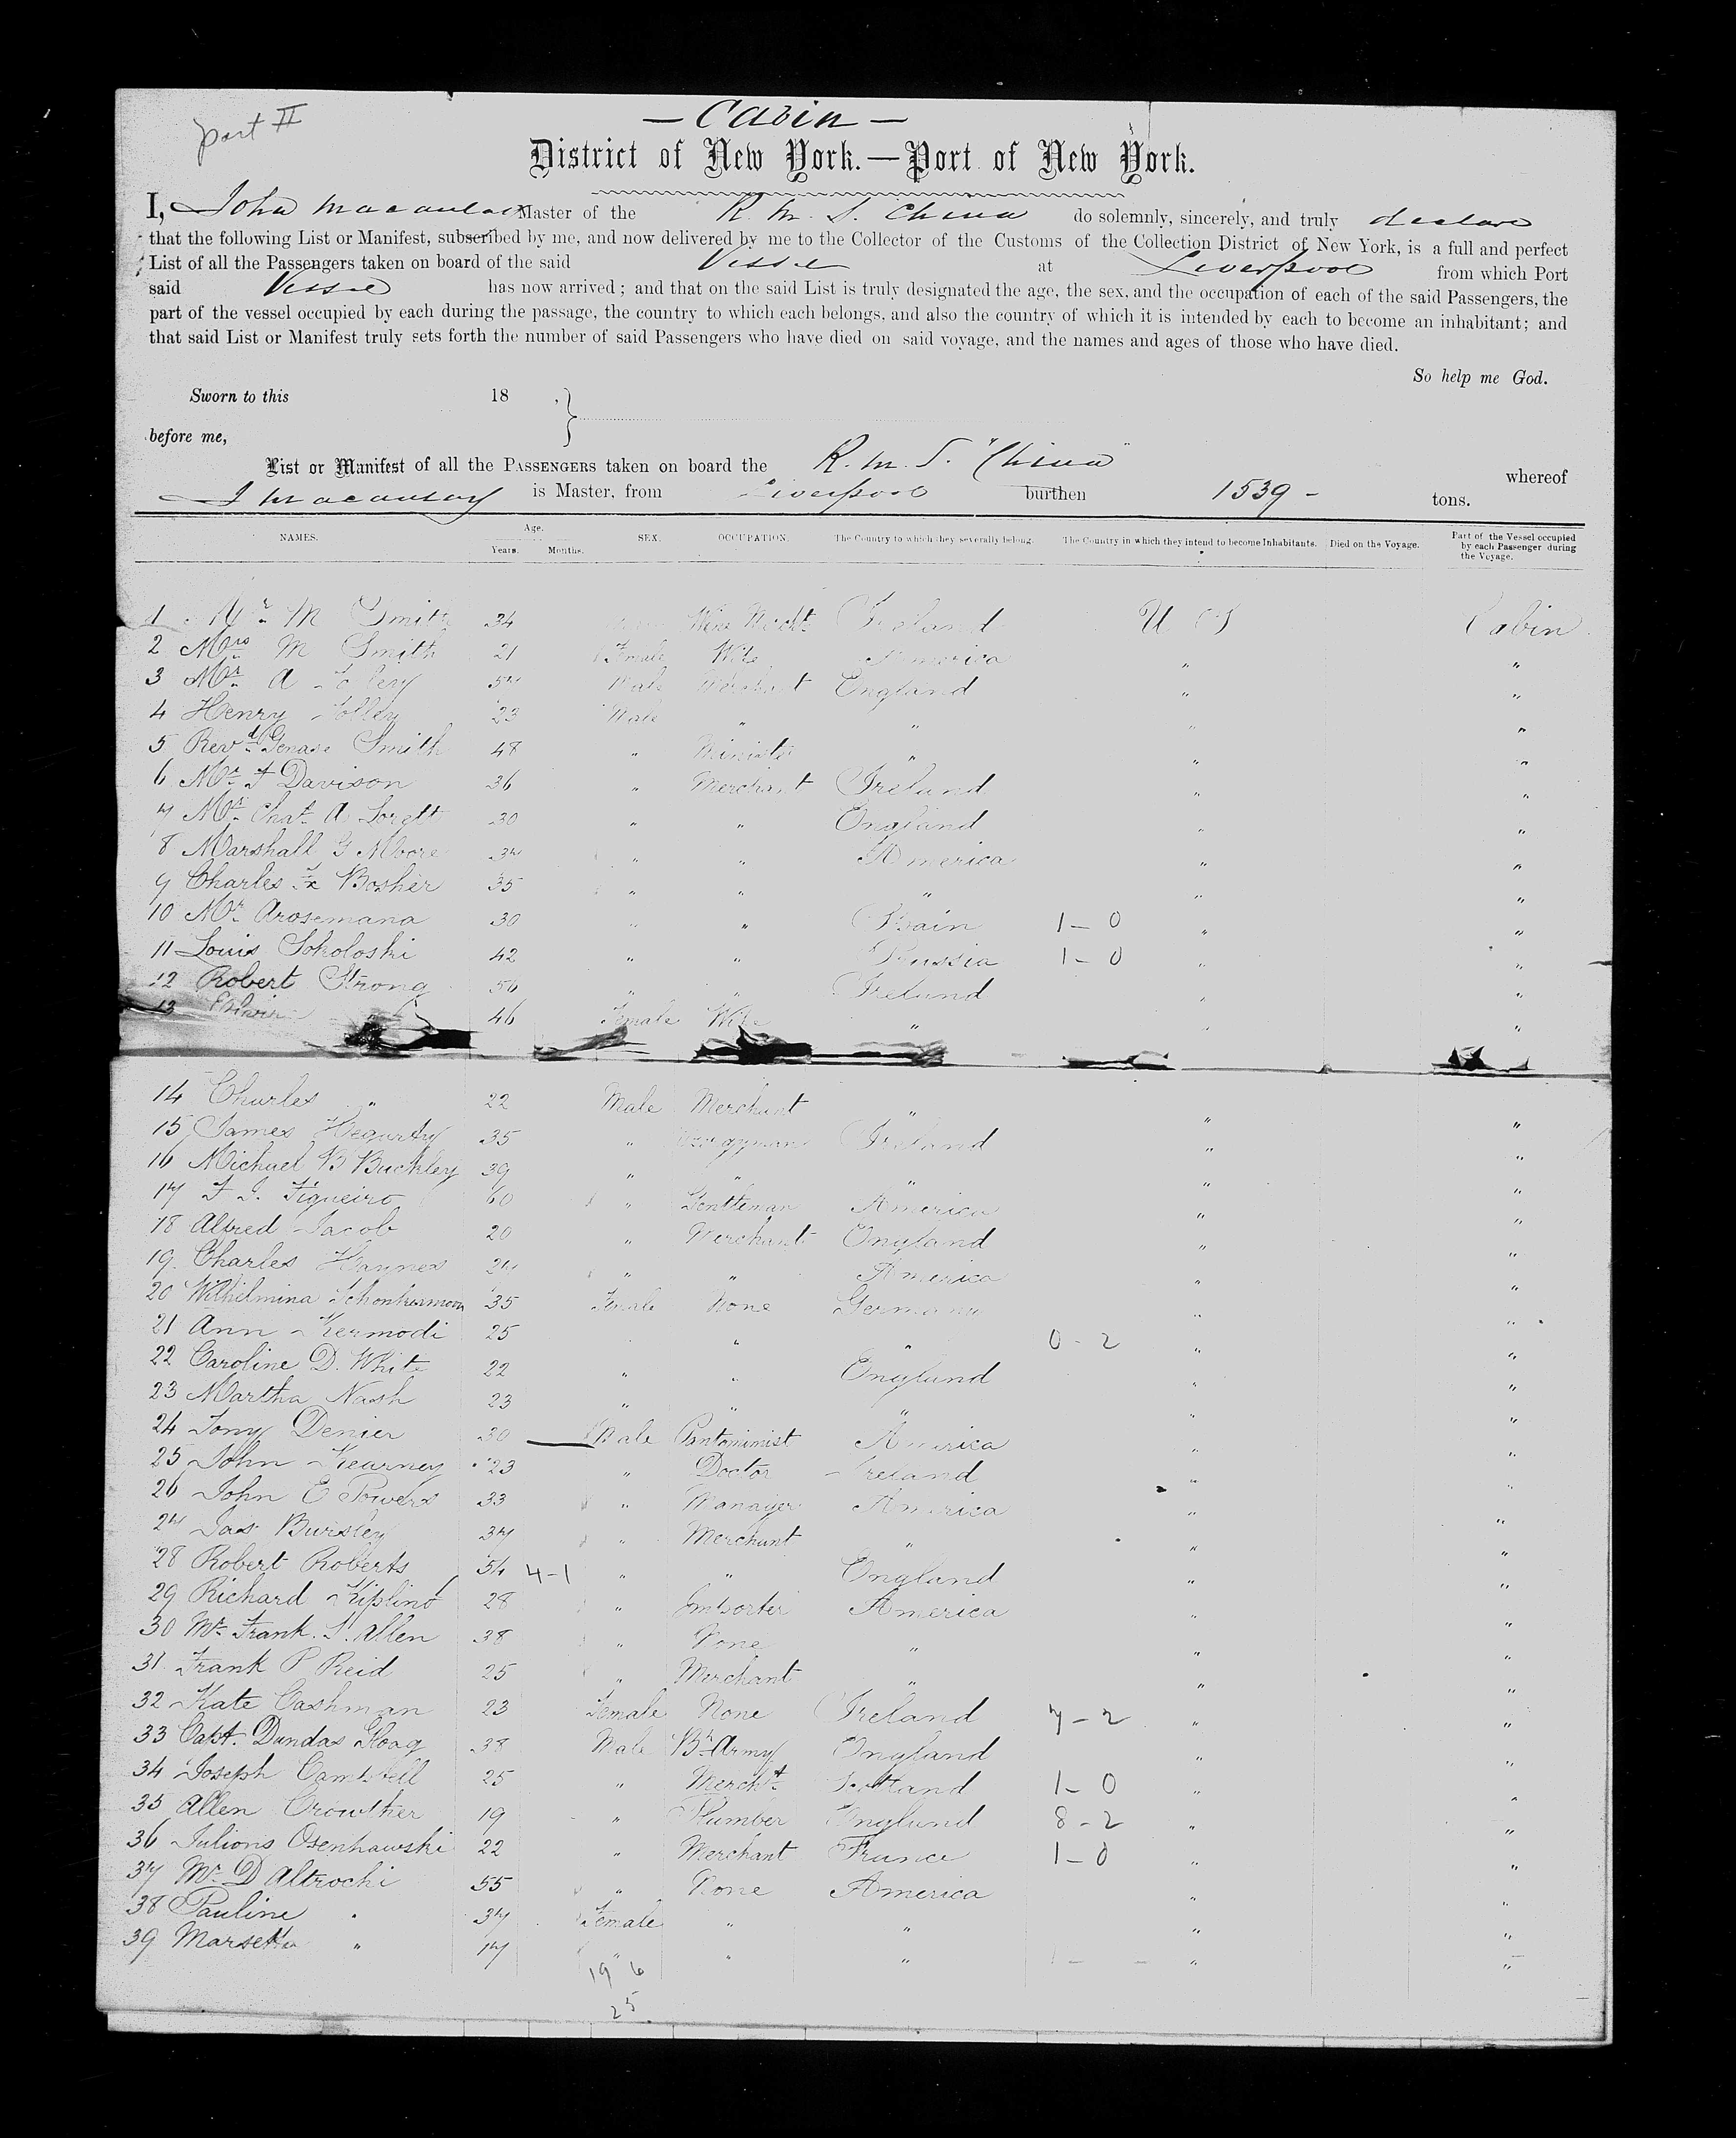 part II
— Cabin —
District of New York.—Port of New York.
I, John Macaulay Master of the R. M. S. China do solemnly, sincerely, and truly declare
that the following List or Manifest, subscribed by me, and now delivered by me to the Collector of the Customs of the Collection District of New York, is a full and perfect
List of all the Passengers taken on board of the said Vessel at Liverpool from which Port
said Vessel has now arrived; and that on the said List is truly designated the age, the sex, and the occupation of each of the said Passengers, the
part of the vessel occupied by each during the passage, the country to which each belongs, and also the country of which it is intended by each to become an inhabitant; and
that said List or Manifest truly sets forth the number of said Passengers who have died on said voyage, and the names and ages of those who have died.
So help me God.
Sworn to this 18 ,
before me,
List or Manifest of all the PASSENGERS taken on board the R. M. S. "China" whereof
J Macaulay is Master, from Liverpool burthen 1539 - tons.
NAMES. Age. Years. Months. SEX. OCCUPATION. The Country to which they severally belong. The Country in which they intend to become Inhabitants. Died on the Voyage. Part of the Vessel occupied by each Passenger during the Voyage.
1 Mr M Smith 34 Wine Mercht Ireland U S Cabin
2 Mrs M Smith 21 Female Wife America " "
3 Mr A 54 Male Merchant England " "
4 Henry 23 Male " " " "
5 Revd Smith 48 " Minister " " "
6 Mr F Davison 36 " Merchant Ireland " "
7 Mr Chas A 30 " " England " "
8 Marshall G Moore 34 " " America " "
9 Charles Bosher 35 " " " " "
10 Mr Arosemana 30 " " Spain 1-0 " "
11 Louis Sokoloski 42 " " Russia 1-0 " "
12 Robert Strong 56 " " Ireland " "
13 46 Female Wife " " "
14 Charles " 22 Male Merchant " " "
15 James Hegarty 35 " Clergyman Ireland " "
16 Michael B Buckley 39 " " " " "
17 F J. Figueiro 60 " Gentleman America " "
18 Alfred Jacob 20 " Merchant England " "
19 Charles Haynes 24 " " America " "
20 Wilhelmina 35 Female None Germany " "
21 Ann Kermodi 25 " " 0-2 " "
22 Caroline D. White 22 " " England " "
23 Martha Nash 23 " " " " "
24 Tony Denier 30 Male Pantomimist America " "
25 John Kearney 23 " Doctor Ireland " "
26 John E Powers 33 " Manager America " "
27 Jas Bursley 37 " Merchant " " "
28 Robert Roberts 54 4-1 " " England " "
29 Richard Kipling 28 " Importer America " "
30 Mr Frank. S. Allen 38 " None " " "
31 Frank P Reid 25 " Merchant " " "
32 Kate Cashman 23 Female None Ireland 7-2 " "
33 Capt. Dundas Gloag 38 Male Bh Army England " "
34 Joseph Campbell 25 " Mercht Scotland 1-0 " "
35 Allen Crowther 19 " Plumber England 8-2 " "
36 Julions Osenhawski 22 " Merchant France 1-0 " "
37 Mr D Altrochi 55 " None America " "
38 Pauline " 37 Female " " " "
39 " 17 " " " " "
19 6
25